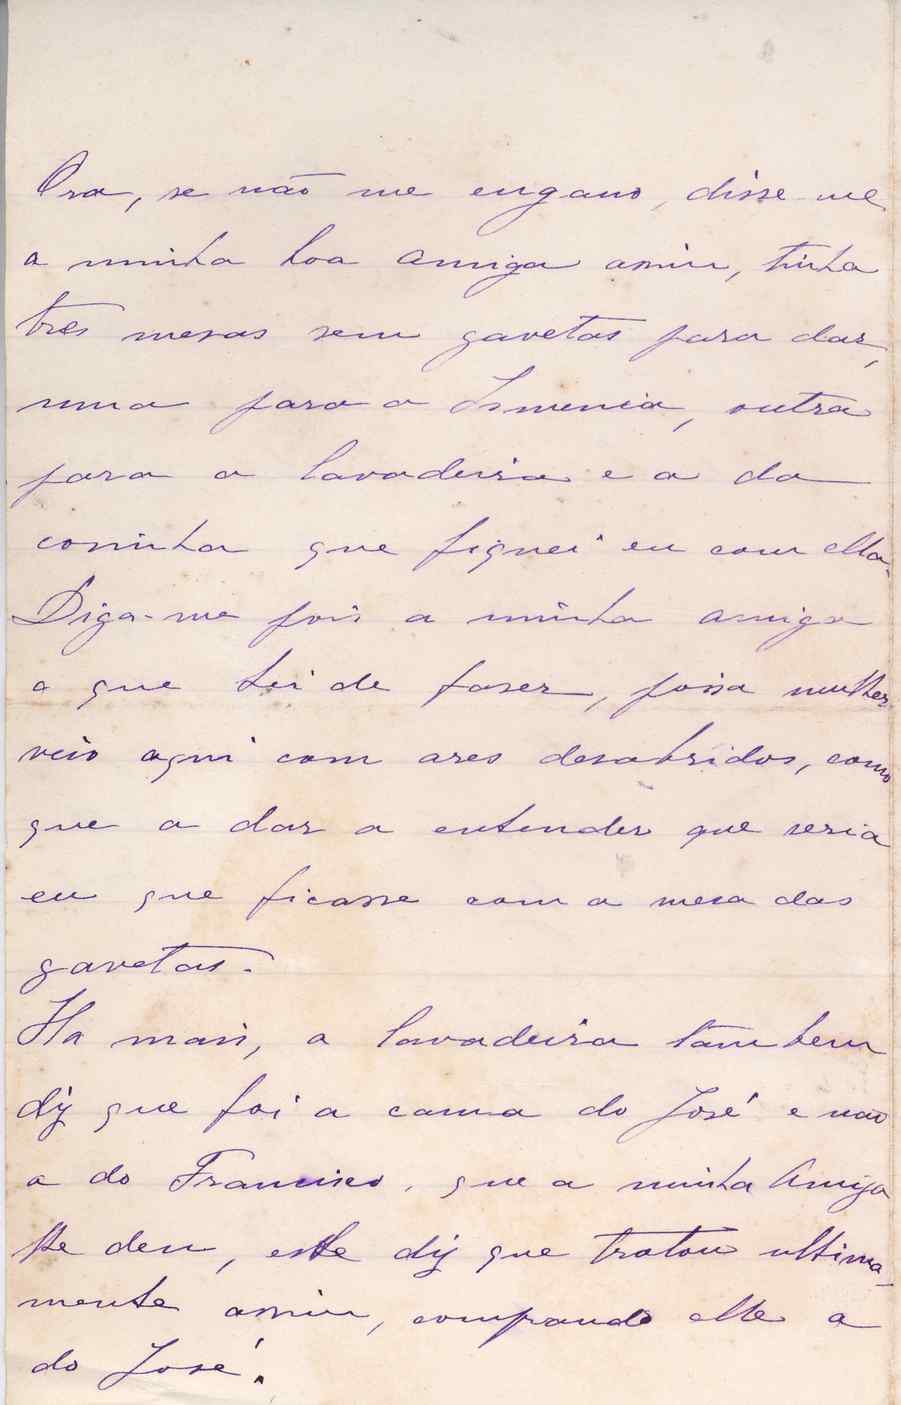 Ora, se não me engano, disse-me
a minha boa amiga assim, tinha
três mesas sem gavetas para dar,
uma para a Ismenia, outra
para a lavadeira e a da
cosinha que fiquei eu com ella.
Diga-me pois a minha amiga
o que hei de faser, pois a mulher
veio aqui com ares desabridos, como
que a dar a entender que seria
eu que ficasse com a mesa das
gavetas.
Ha mais, a lavadeira tambem
diz que foi a cama do José e não
a do Francisco, que a minha Amiga
lhe deu, este diz que tratou ultima-
mente assim, comprando elle a
do José.